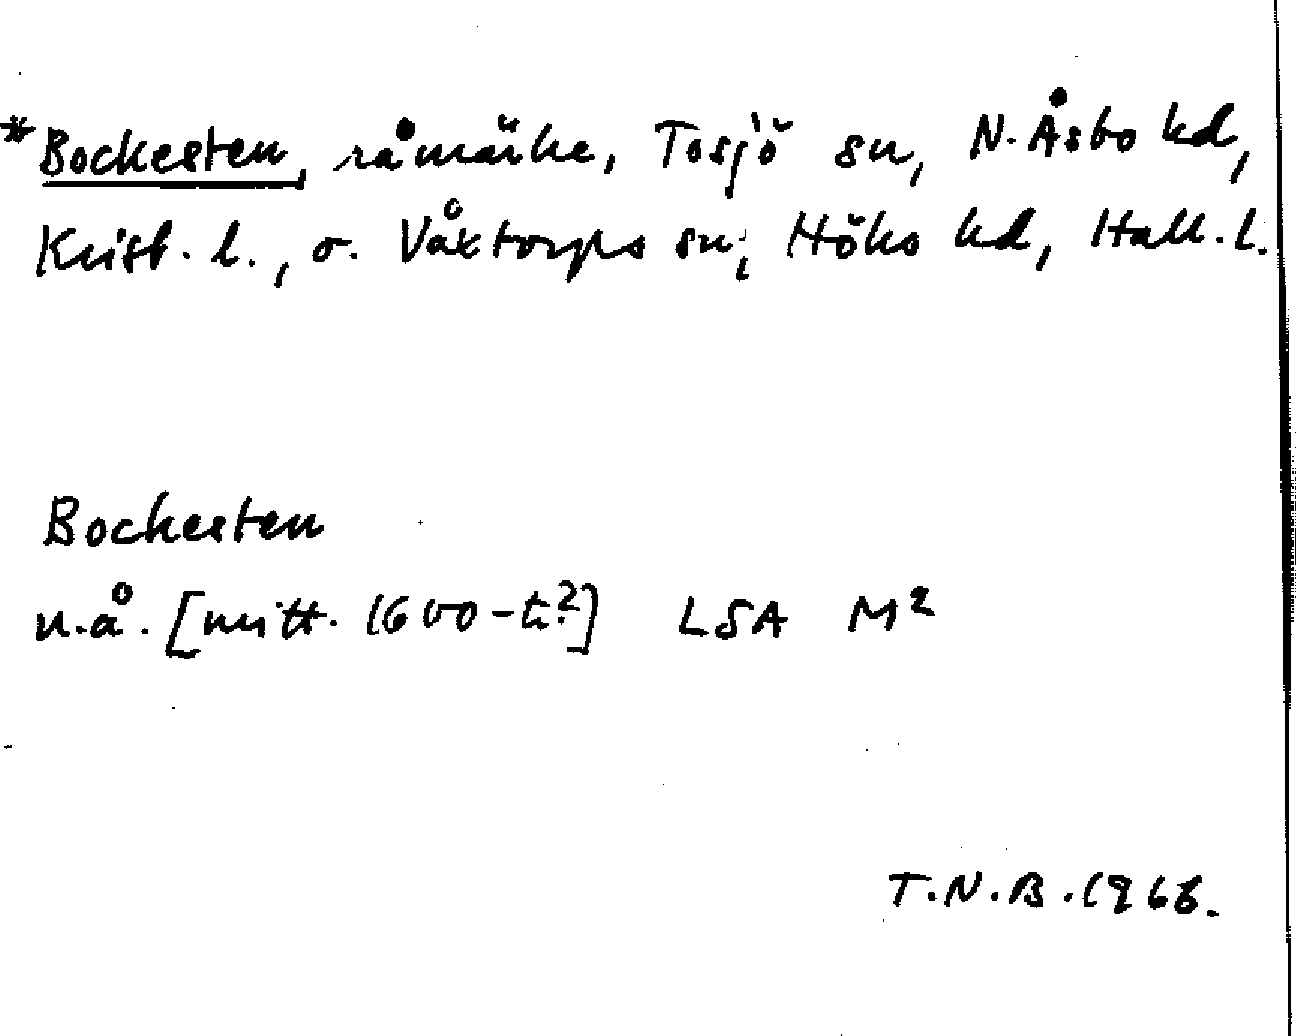 *Bockesten, råmärke, Tosjö sn, N. Åsbo hd,
Krist. l., o. Våxtorps sn, Höks hd, Hall. l.
Bockesten
u.å. [mitt. 1600-t.?] LSA M²
T.N.B. 1968.